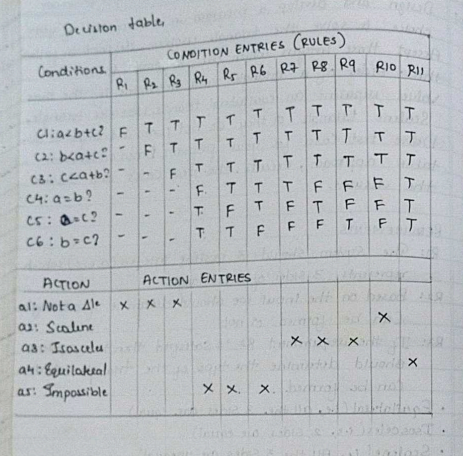 Decision table,
CONDITION ENTRIES (RULES)
Conditions R1 R2 R3 R4 R5 R6 R7 R8 R9 R10 R11
C1: a<b+c? F T T T T T T T T T T
C2: b<a+c? - F T T T T T T T T T
C3: c<a+b? - - F T T T T T T T T
C4: a=b? - - - F T T T F F F T
C5: a=c? - - - T F T F T F F T
C6: b=c? - - - T T F F F T F T
ACTION ACTION ENTRIES
a1: Not a Δle x x x
a2: Scalene x
a3: Isosceles x x x
a4: Equilateral x
a5: Impossible x x x